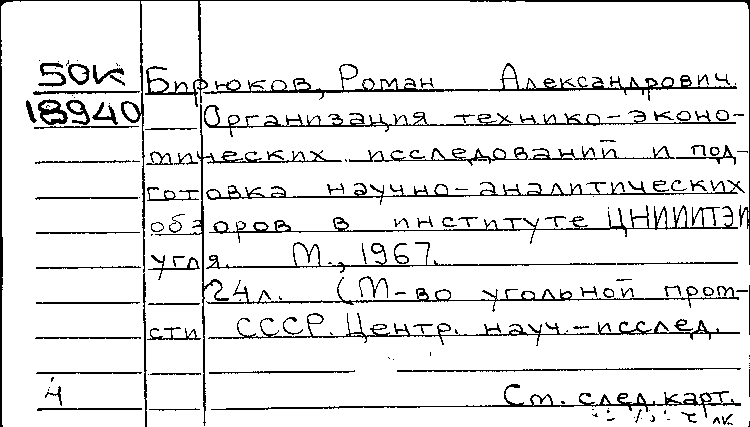 50К Бирюков, Роман Александрович.
18940 Организация технико-эконо-
мических исследований и под-
готовка научно-аналитических
обзоров в институте ЦНИИИТЭИ
угля. М., 1967.
24л. (М-во угольной пром-
сти СССР. Центр. науч.-исслед.
4 Ст. след. карт.